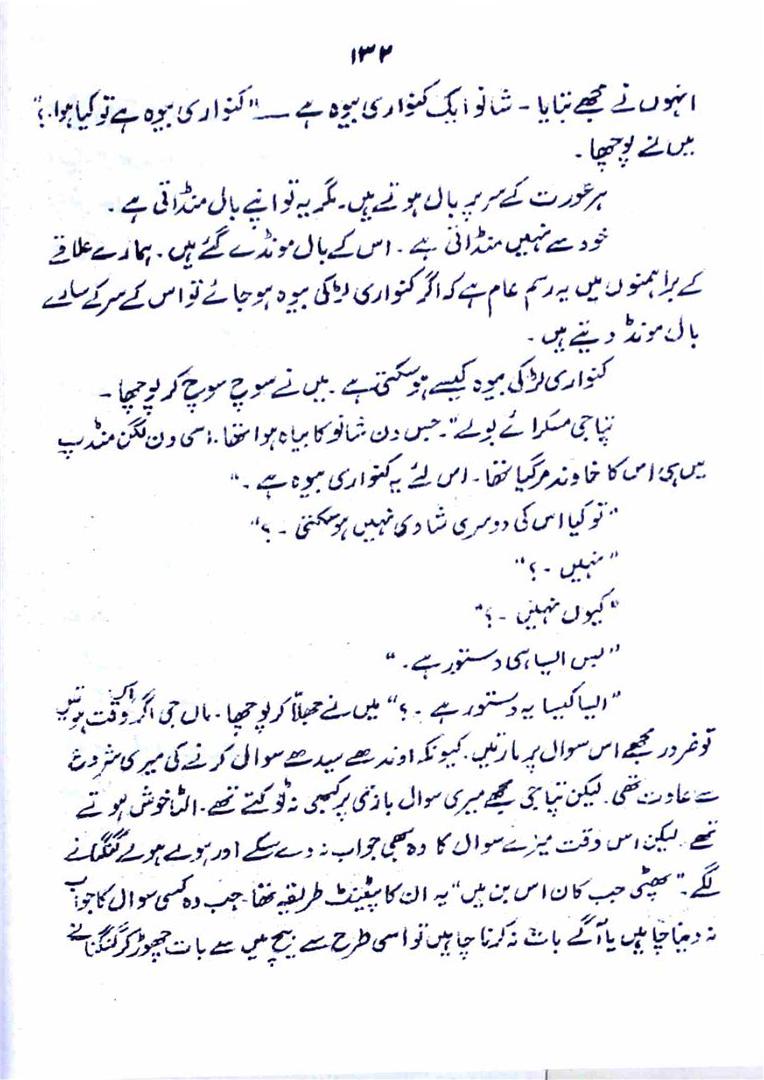 ۱۳۲
انہوں نے مجھے بتایا - شانو ایک کنواری بیوہ ہے — "کنواری بیوہ ہے تو کیا ہوا۔؟"
میں نے پوچھا۔
ہر عورت کے سر پر بال ہوتے ہیں۔ مگر یہ تو اپنے بال منڈاتی ہے۔
خود سے نہیں منڈاتی ہے۔ اس کے بال مونڈے گئے ہیں۔ ہمارے علاقے
کے براہمنوں میں یہ رسم عام ہے کہ اگر کنواری لڑکی بیوہ ہو جائے تو اس کے سر کے سارے
بال مونڈ دیتے ہیں۔
کنواری لڑکی بیوہ کیسے ہو سکتی ہے۔ میں نے سوچ سوچ کر پوچھا۔
پتاجی مسکرائے بولے"۔ جس دن شانو کا بیاہ ہوا تھا۔ اسی دن لگن منڈپ
میں ہی اس کا خاوند مر گیا تھا۔ اس لئے یہ کنواری بیوہ ہے۔"
"تو کیا اس کی دوسری شادی نہیں ہو سکتی -؟"
"نہیں -؟"
"کیوں نہیں -؟"
"بس ایسا ہی دستور ہے۔"
"ایسا کیسا یہ دستور ہے -؟" میں نے جھلا کر پوچھا۔ ماں جی اگر اس وقت ہوتیں
تو ضرور مجھے اس سوال پر مارتیں۔ کیونکہ اوندھے سیدھے سوال کرنے کی میری شروع
سے عادت تھی۔ لیکن پتاجی مجھے میری سوال بازی پر کبھی نہ ٹوکتے تھے۔ الٹا خوش ہوتے
تھے۔ لیکن اس وقت میرے سوال کا وہ بھی جواب نہ دے سکے اور ہولے ہولے گنگنانے
لگے۔ "بھئی جب کان اس بن میں" یہ ان کا پیٹینٹ طریقہ تھا۔ جب وہ کسی سوال کا جواب
نہ دینا چاہیں یا آگے بات نہ کرنا چاہیں تو اسی طرح سے بیچ میں سے بات چھوڑ کر گنگنانے